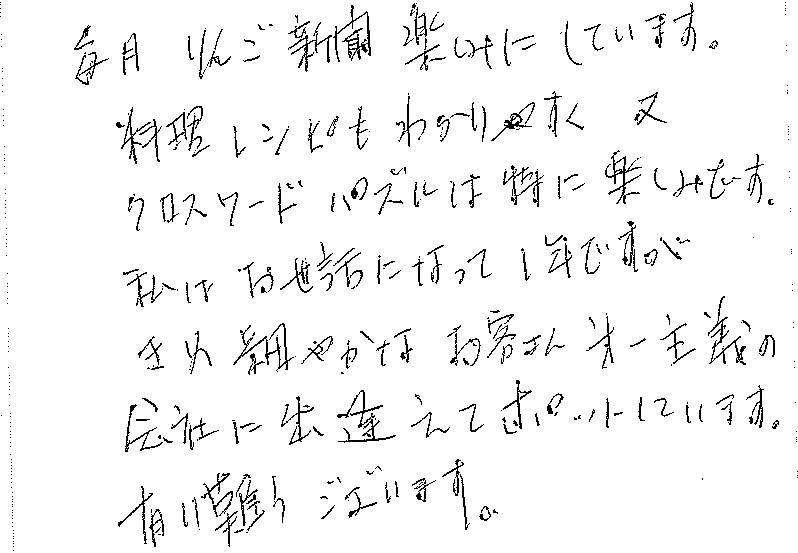 毎月 りんご新聞 楽しみにしています。
料理レシピもわかりやすく 又
クロスワードパズルは特に楽しみです。
私はお世話になって1年ですが
きめ細やかなお客さん第一主義の
会社に出逢えてホットしています。
有り難う ございます。